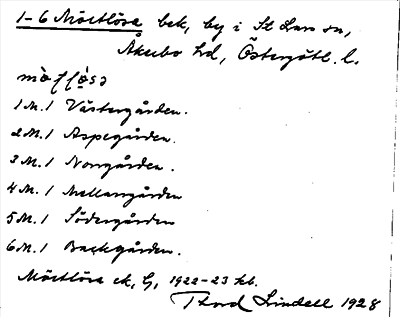 1-6 Mörtlösa bek, by i St Lars sn,
Åkerbo hd, Östergötl. l.
1 M. 1 Västergården.
2 M. 1 Aspegården.
3 M. 1 Norrgården.
4 M. 1 Mellangården
5 M. 1 Södergården
6 M. 1 Backgården.
Mörtlösa ek, G, 1922-23 kb.
Thord Lindell 1928